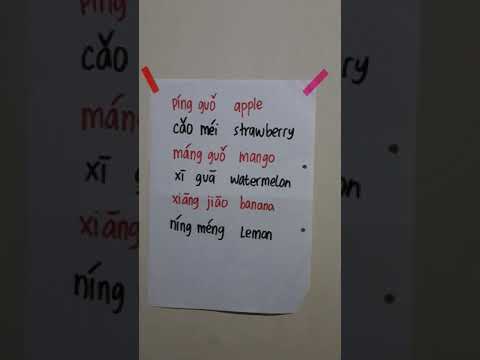 píng guǒ apple
cǎo méi strawberry
máng guǒ mango
xī guā watermelon
xiāng jiāo banana
níng méng Lemon